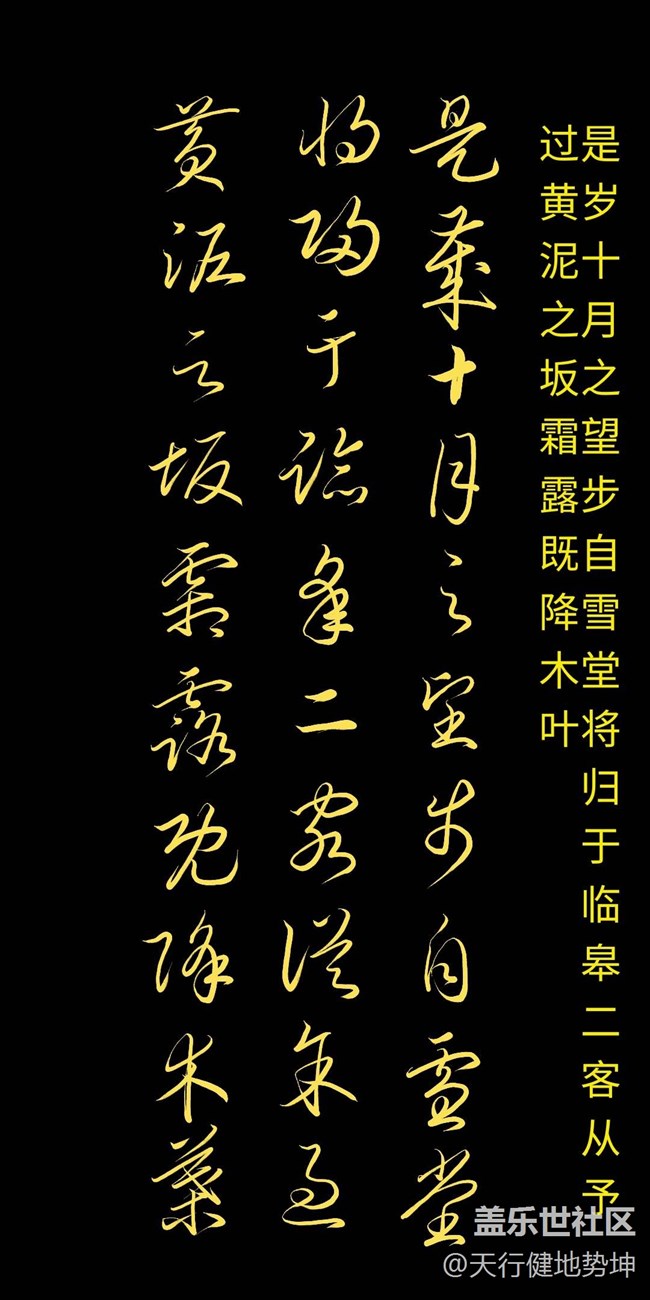 是岁十月之望步自雪堂将归于临皋二客从予
过黄泥之坂霜露既降木叶
是歲十月之望步自雪堂
将歸于臨皋二客從余過
黄泥之坂霜露既降木葉
盖乐世社区
@天行健地势坤